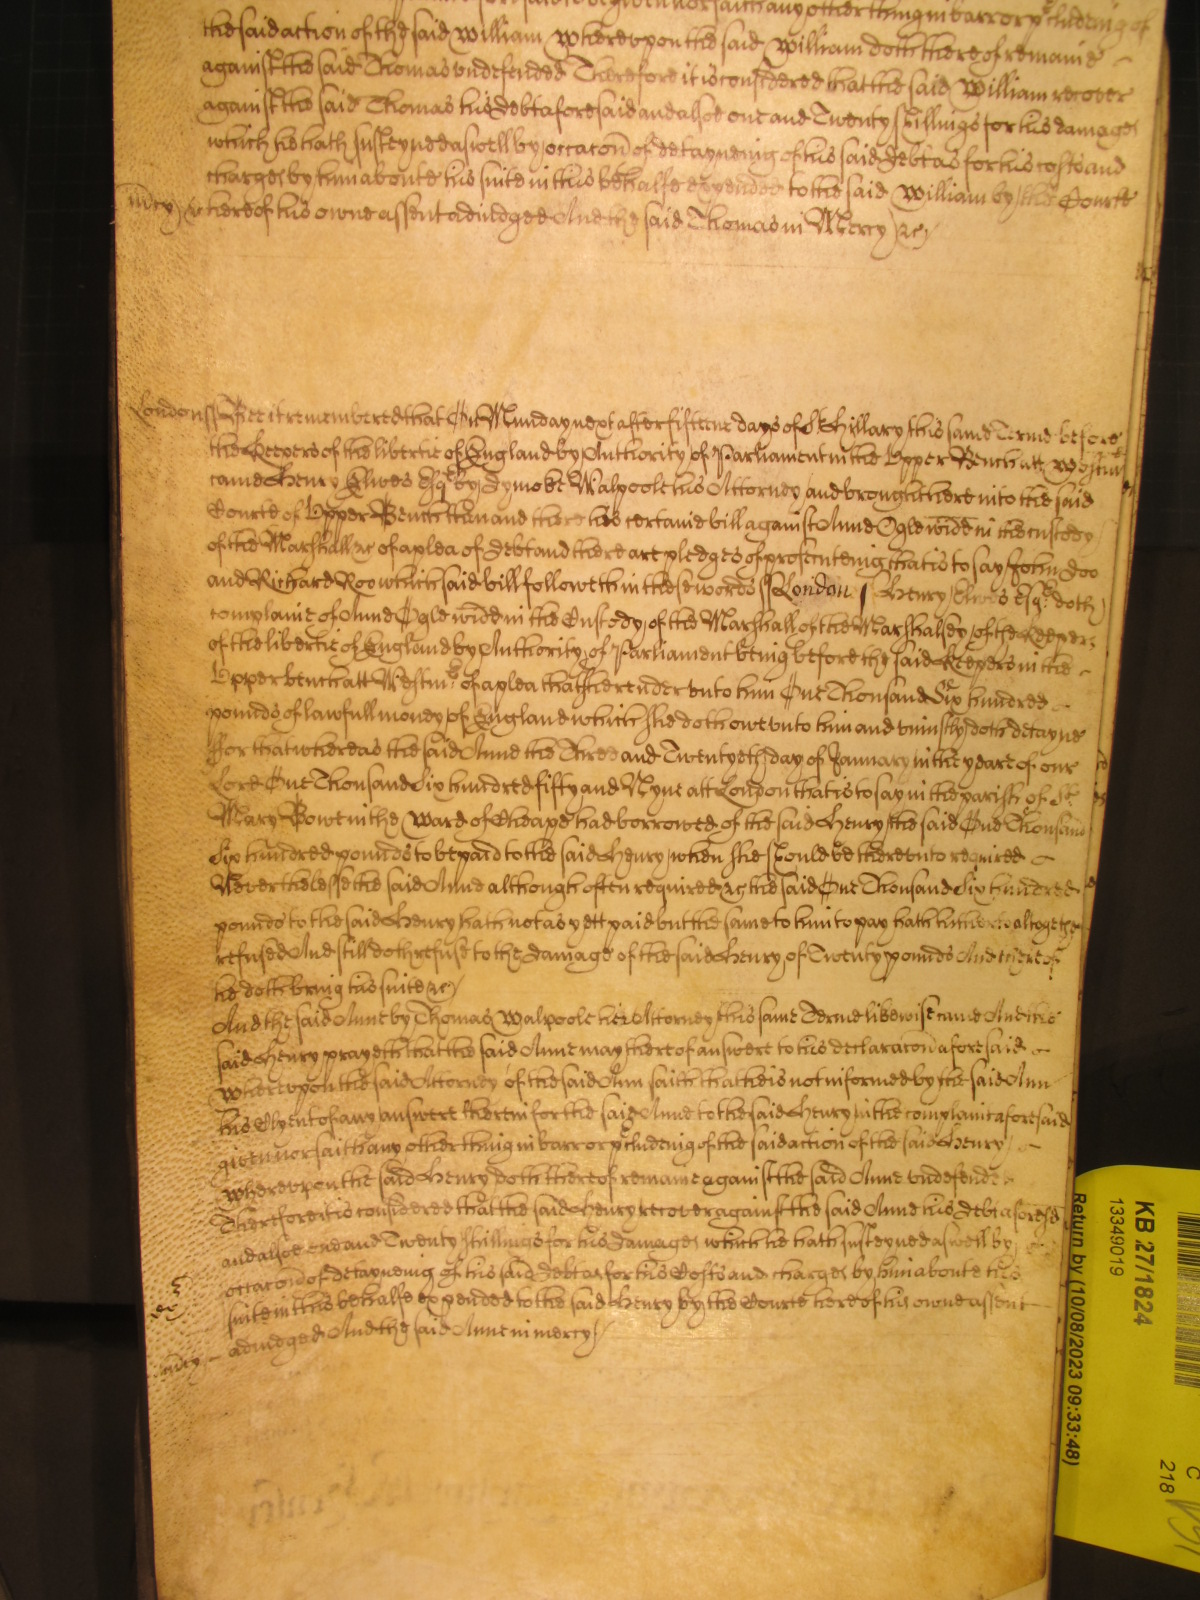 the said action of the said William Whereupon the said William doth thereof remaine
against the said Thomas undefended Therefore it is considered that the said William recover
against the said Thomas his debt aforesaid and alsoe one and Twenty shillings for his damages
which he hath susteyned aswell by occacon of deteyneing of his said debt as for his costs and
charges by him aboute his suite in this behalfe expended to the said William by the Courte
mercy heere of his owne assent adiudged And the said Thomas in Mercy &c
London ss Bee it remembered that On Munday next after fifteene dayes of St Hillary this same Terme before
the Keepers of the libertie of England by Authority of Parliament in the Upper Bench att Westmr
came Henry Elwes Esqr by Dymoke Walpoole his Attorney and brought here into the said
Courte of Upper Bench then and there his certaine bill against Anne Ogle widd in the custody
of the Marshall &c of a plea of debt and there are pledges of prosecuteing that is to say John Doo
and Richard Roo which said bill followeth in these words ss London ss Henry Elwes Esqr doth
complaine of Anne Ogle widd in the Custody of the Marshall of the Marshalsey of the Keepers
of the libertie of England by Authority of Parliament being before the said Keepers in the
Upper bench att Westmr of a plea that shee render unto him One Thousand Six hundred
pounds of lawfull money of England which shee doth owe unto him and uniustly doth detayne
For that whereas the said Anne the Three and Twentyeth day of January in the yeare of our
Lord One Thousand Six hundred fifty and Nyne att London that is to say in the parish of St
Mary Bowe in the Ward of Cheape had borrowed of the said Henry the said One Thousand
Six hundred pounds to be paid to the said Henry when shee should be thereunto required
Neverthelesse the said Anne although often required &c the said One Thousand Six hundred
pounds to the said Henry hath not as yett paid but the same to him to pay hath hitherto altogether
refused And still doth refuse to the damage of the said Henry of Twenty pounds And thereof
he doth bring his suite &c
And the said Anne by Thomas Walpoole her Attorney this same Terme likewise came And the
said Henry prayeth that the said Anne may thereof answere to his declaracon aforesaid
Whereupon the said Attorney of the said Ann saith that he is not informed by the said Ann
his Clyent of any answere therein for the said Anne to the said Henry in the complaint aforesaid
given nor saith any other thing in barr or pcludeing of the said action of the said Henry
Whereupon the said Henry doth thereof remaine against the said Anne undefended
Therefore it is considered that the said Henry recover against the said Anne his debt aforesd
and alsoe one and Twenty shillings for his damages which he hath susteyned aswell by
occacon of detayneing of his said debt as for his Costs and charges by him aboute his
suite in this behalfe expended to the said Henry by the Courte here of his owne assent
mercy adiudged And the said Anne in mercy
KB 27/1824
13349019
Return by (10/08/2023 09:33:48)
C
218